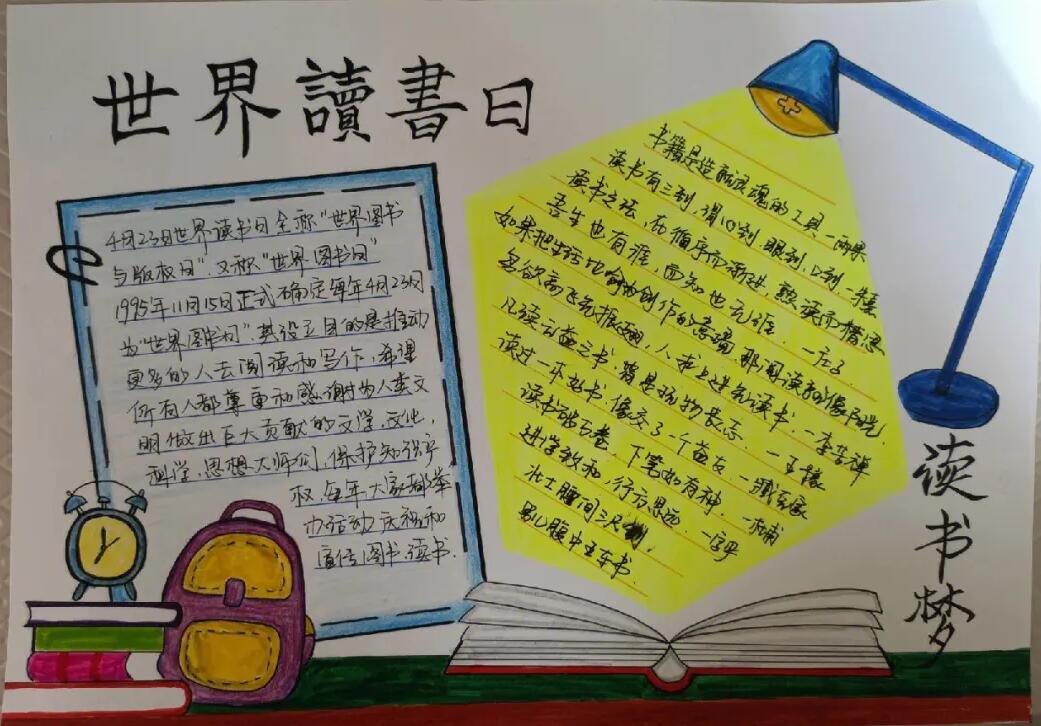 世界讀書日
4月23日世界读书日全称"世界图书
与版权日",又称"世界图书日"
1995年11月15日正式确定每年4月23日
为"世界图书日",其设立目的是推动
更多的人去阅读和写作,希望
所有人都尊重和感谢为人类文
明做出巨大贡献的文学,文化,
科学,思想大师们,保护知识产
权,每年大家都举
办活动庆祝和
宣传图书读书.
书籍是造就灵魂的工具—雨果
读书有三到,谓心到,眼到,口到—朱熹
读书之法,在循序而渐进,熟读而精思
吾生也有涯,而知也无涯. —庄子
如果把生活比喻为创作的意境,那么阅读就像阳光.
鸟欲高飞先振翅,人求上进先读书.—李苦禅
凡读无益之书,皆是玩物丧志. —王豫
读过一本好书,像交了一个益友. —臧克家
读书破万卷,下笔如有神. —杜甫
进学致和,行方思远.
壮士腰间三尺剑,
男儿腹中五车书.
读书梦